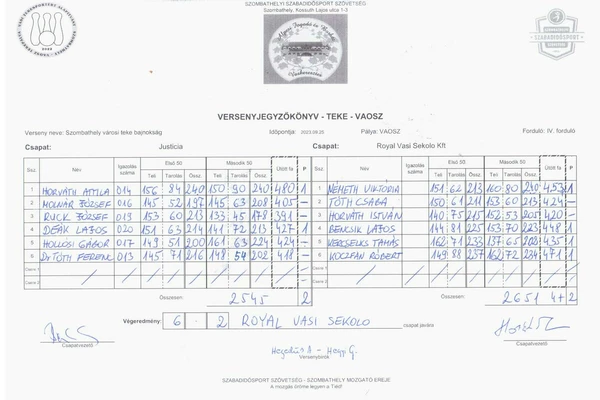 SZOMBATHELYI SZABADIDŐSPORT SZÖVETSÉG
Szombathely, Kossuth Lajos utca 1-3
VERSENYJEGYZŐKÖNYV - TEKE - VAOSZ
Verseny neve: Szombathely városi teke bajnokság Időpontja: 2023.09.25 Pálya: VAOSZ Forduló: IV. forduló
Csapat: Justicia Csapat: Royal Vasi Sekolo Kft
Ssz. Név Igazolás száma Első 50 Második 50 Ütött fa P Ssz. Név Igazolás száma Első 50 Második 50 Ütött fa P
Teli Tarolás Össz. Teli Tarolás Össz. Teli Tarolás Össz. Teli Tarolás Össz.
1 HORVÁTH ATTILA 014 156 84 240 150 90 240 480 1 1 NÉMETH VIKTÓRIA 151 62 213 160 80 240 453 1
2 MOLNÁR JÓZSEF 016 145 52 197 145 63 208 405 - 2 TÓTH CSABA 150 61 211 153 60 213 424 -
3 RUCK JÓZSEF 019 153 60 213 133 45 178 391 - 3 HORVÁTH ISTVÁN 140 75 215 152 53 205 420 -
4 DEÁK LAJOS 020 151 63 214 141 72 213 427 1 4 BENCSIK LAJOS 144 81 225 153 70 223 448 1
5 HOLLÓSI GÁBOR 017 149 51 200 161 63 224 424 - 5 TAMÁS 162 71 233 137 65 202 435 1
6 Dr TÓTH FERENC 013 145 71 216 148 54 202 418 - 6 KOCZFÁN RÓBERT 149 88 237 162 72 234 471 1
Csere 1 Csere 1
Csere 2 Csere 2
Összesen: 2545 2 Összesen: 2651 4+2
Végeredmény: 6 - 2 ROYAL VASI SEKOLO csapat javára
Csapatvezető Csapatvezető
Versenybírók
SZABADIDŐSPORT SZÖVETSÉG - SZOMBATHELY MOZGATÓ EREJE
A mozgás öröme legyen a Tiéd!